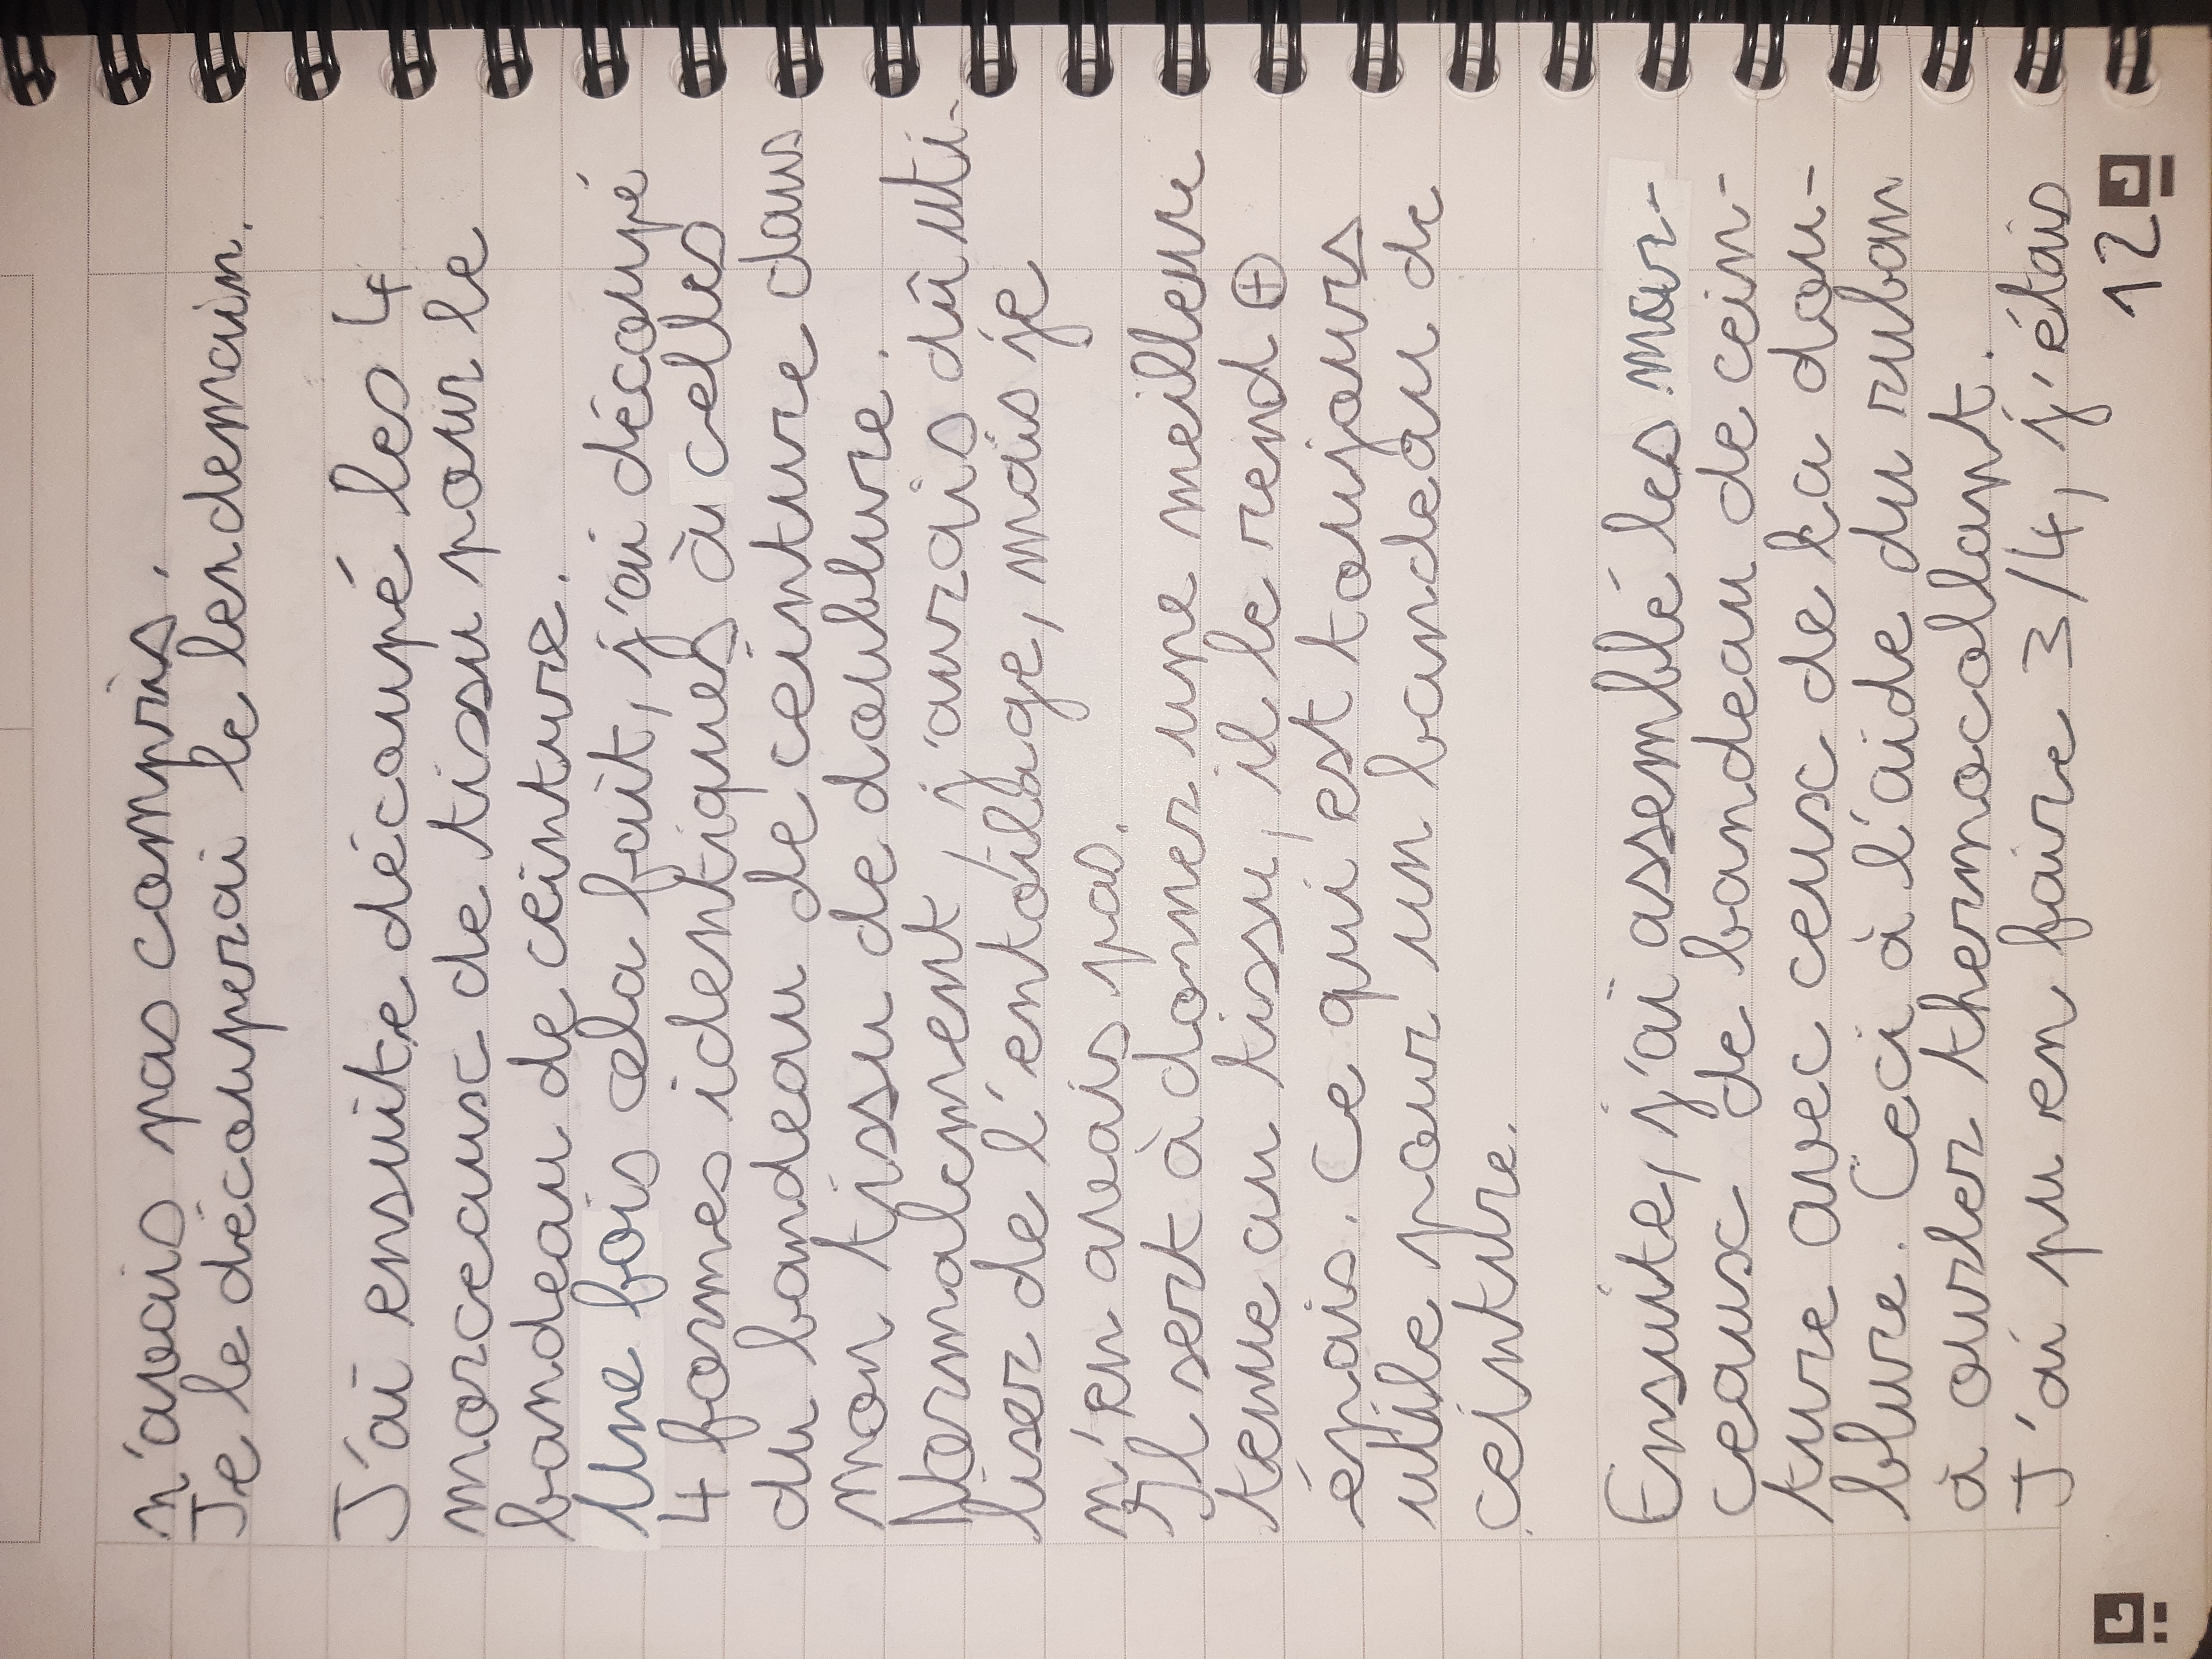 n'avais pas compris.
Je le découperai le lendemain.
J'ai ensuite découpé les 4
morceaux de tissu pour le
bandeau de ceinture.
Une fois cela fait, j'ai découpé
4 formes identiques à celles
du bandeau de ceinture dans
mon tissu de doublure.
Normalement j'aurais dû uti-
liser de l'entoilage, mais je
n'en avais pas.
Il sert à donner une meilleure
tenue au tissu, il le rend ⊕
épais. Ce qui est toujours
utile pour un bandeau de
ceinture.
Ensuite, j'ai assemblé les mor-
ceaux de bandeau de cein-
ture avec ceux de la dou-
blure. Ceci à l'aide du ruban
à ourler thermocollant.
J'ai pu en faire 3/4, j'étais
12